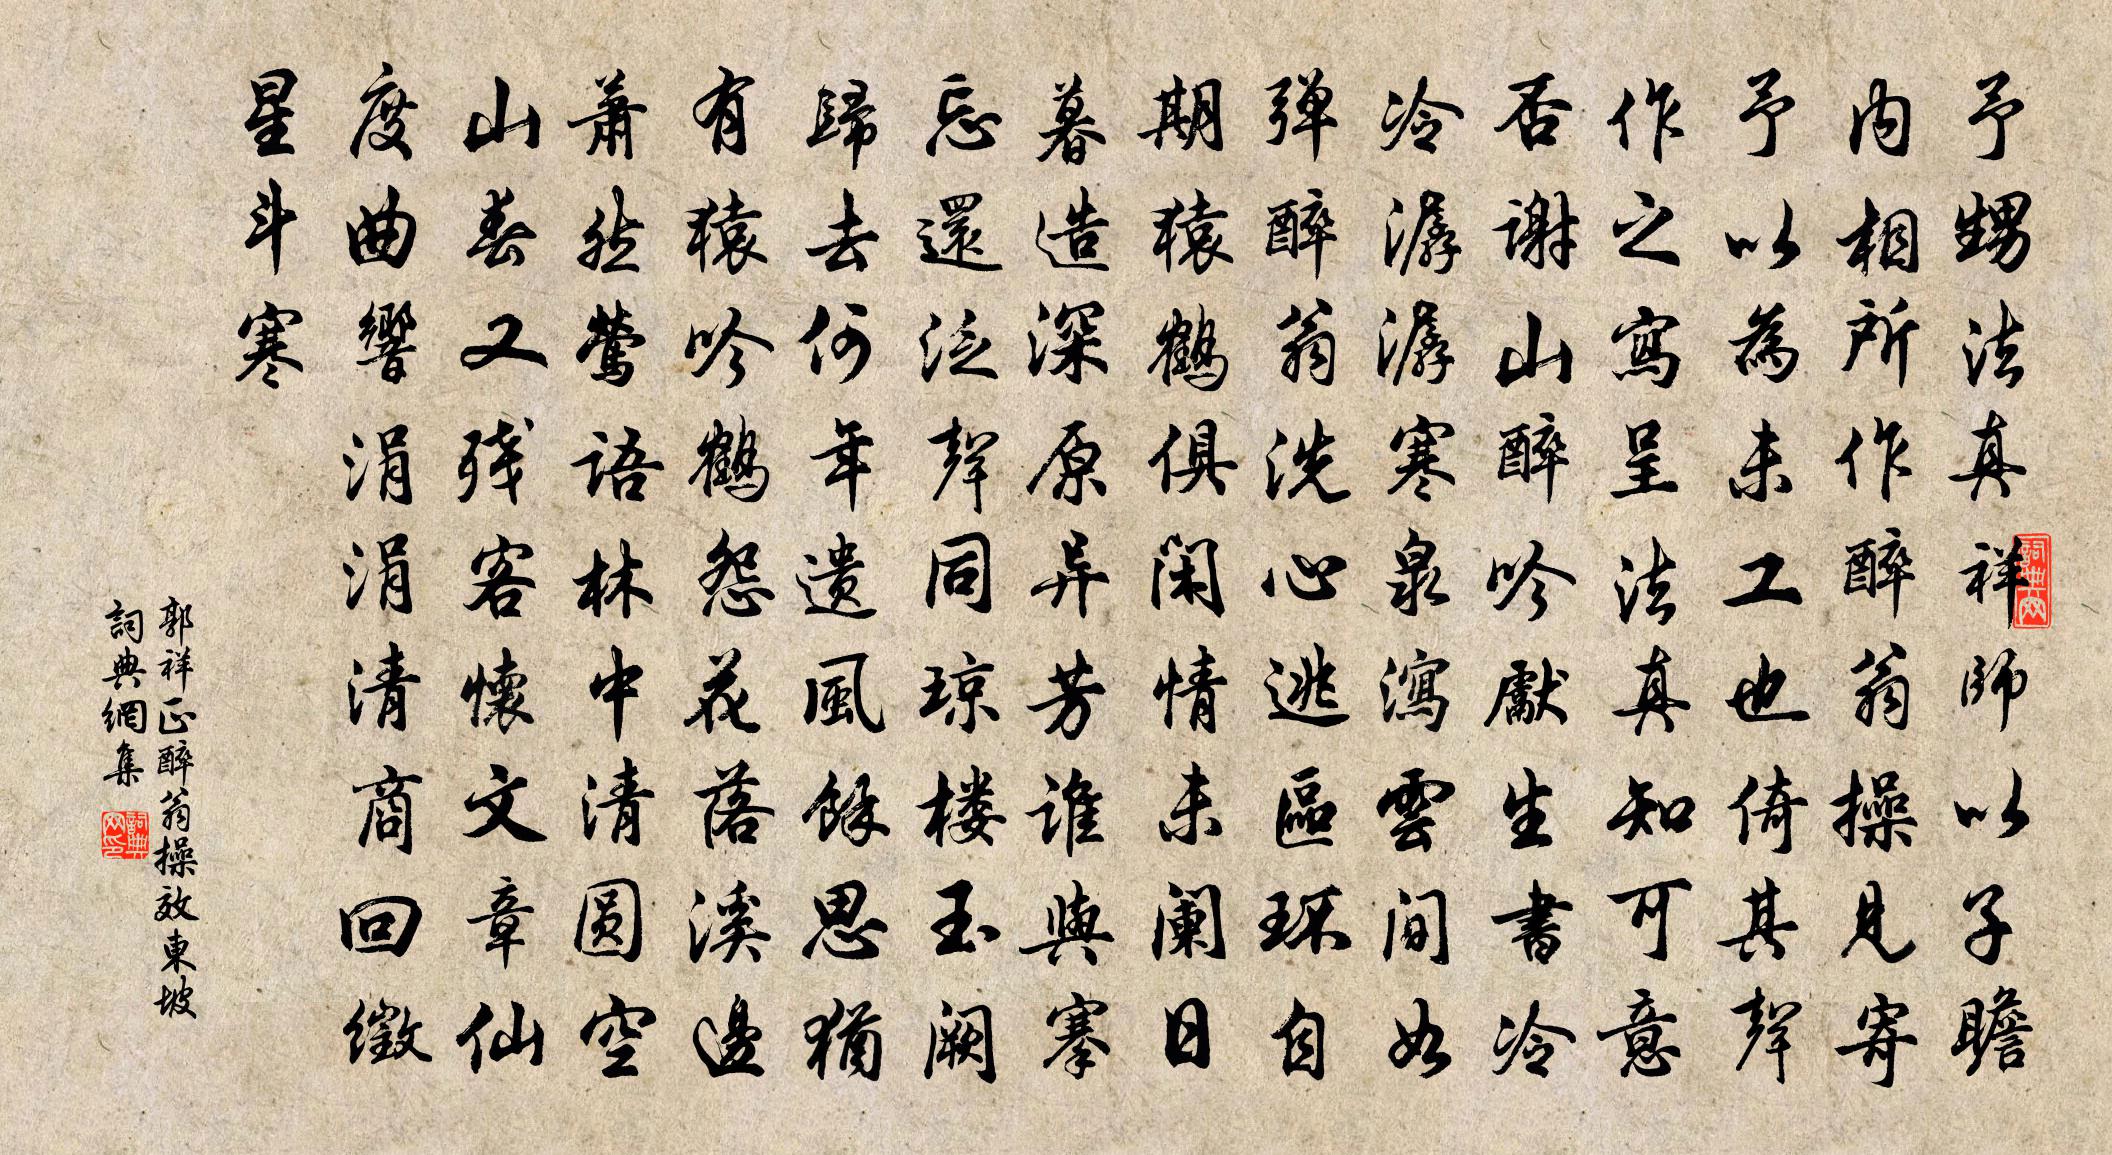 予甥法真祥師以子瞻
内相所作醉翁操見寄
予以為未工也倚其聲
作之寫呈法真知可意
否謝山醉吟獻生書冷
冷潺潺寒泉瀉雲間如
彈醉翁洗心逃區環自
期猿鶴俱閑情未闌日
暮造深原异芳誰與搴
忘還泛聲同琼楼玉闕
歸去何年遗風餘思猶
有猿吟鶴怨花落溪邊
萧然鶯語林中清圆空
山春又残客懷文章仙
度曲響涓涓清商回徵
星斗寒
郭祥正醉翁操效東坡
詞典網集
詞典网
詞典网印